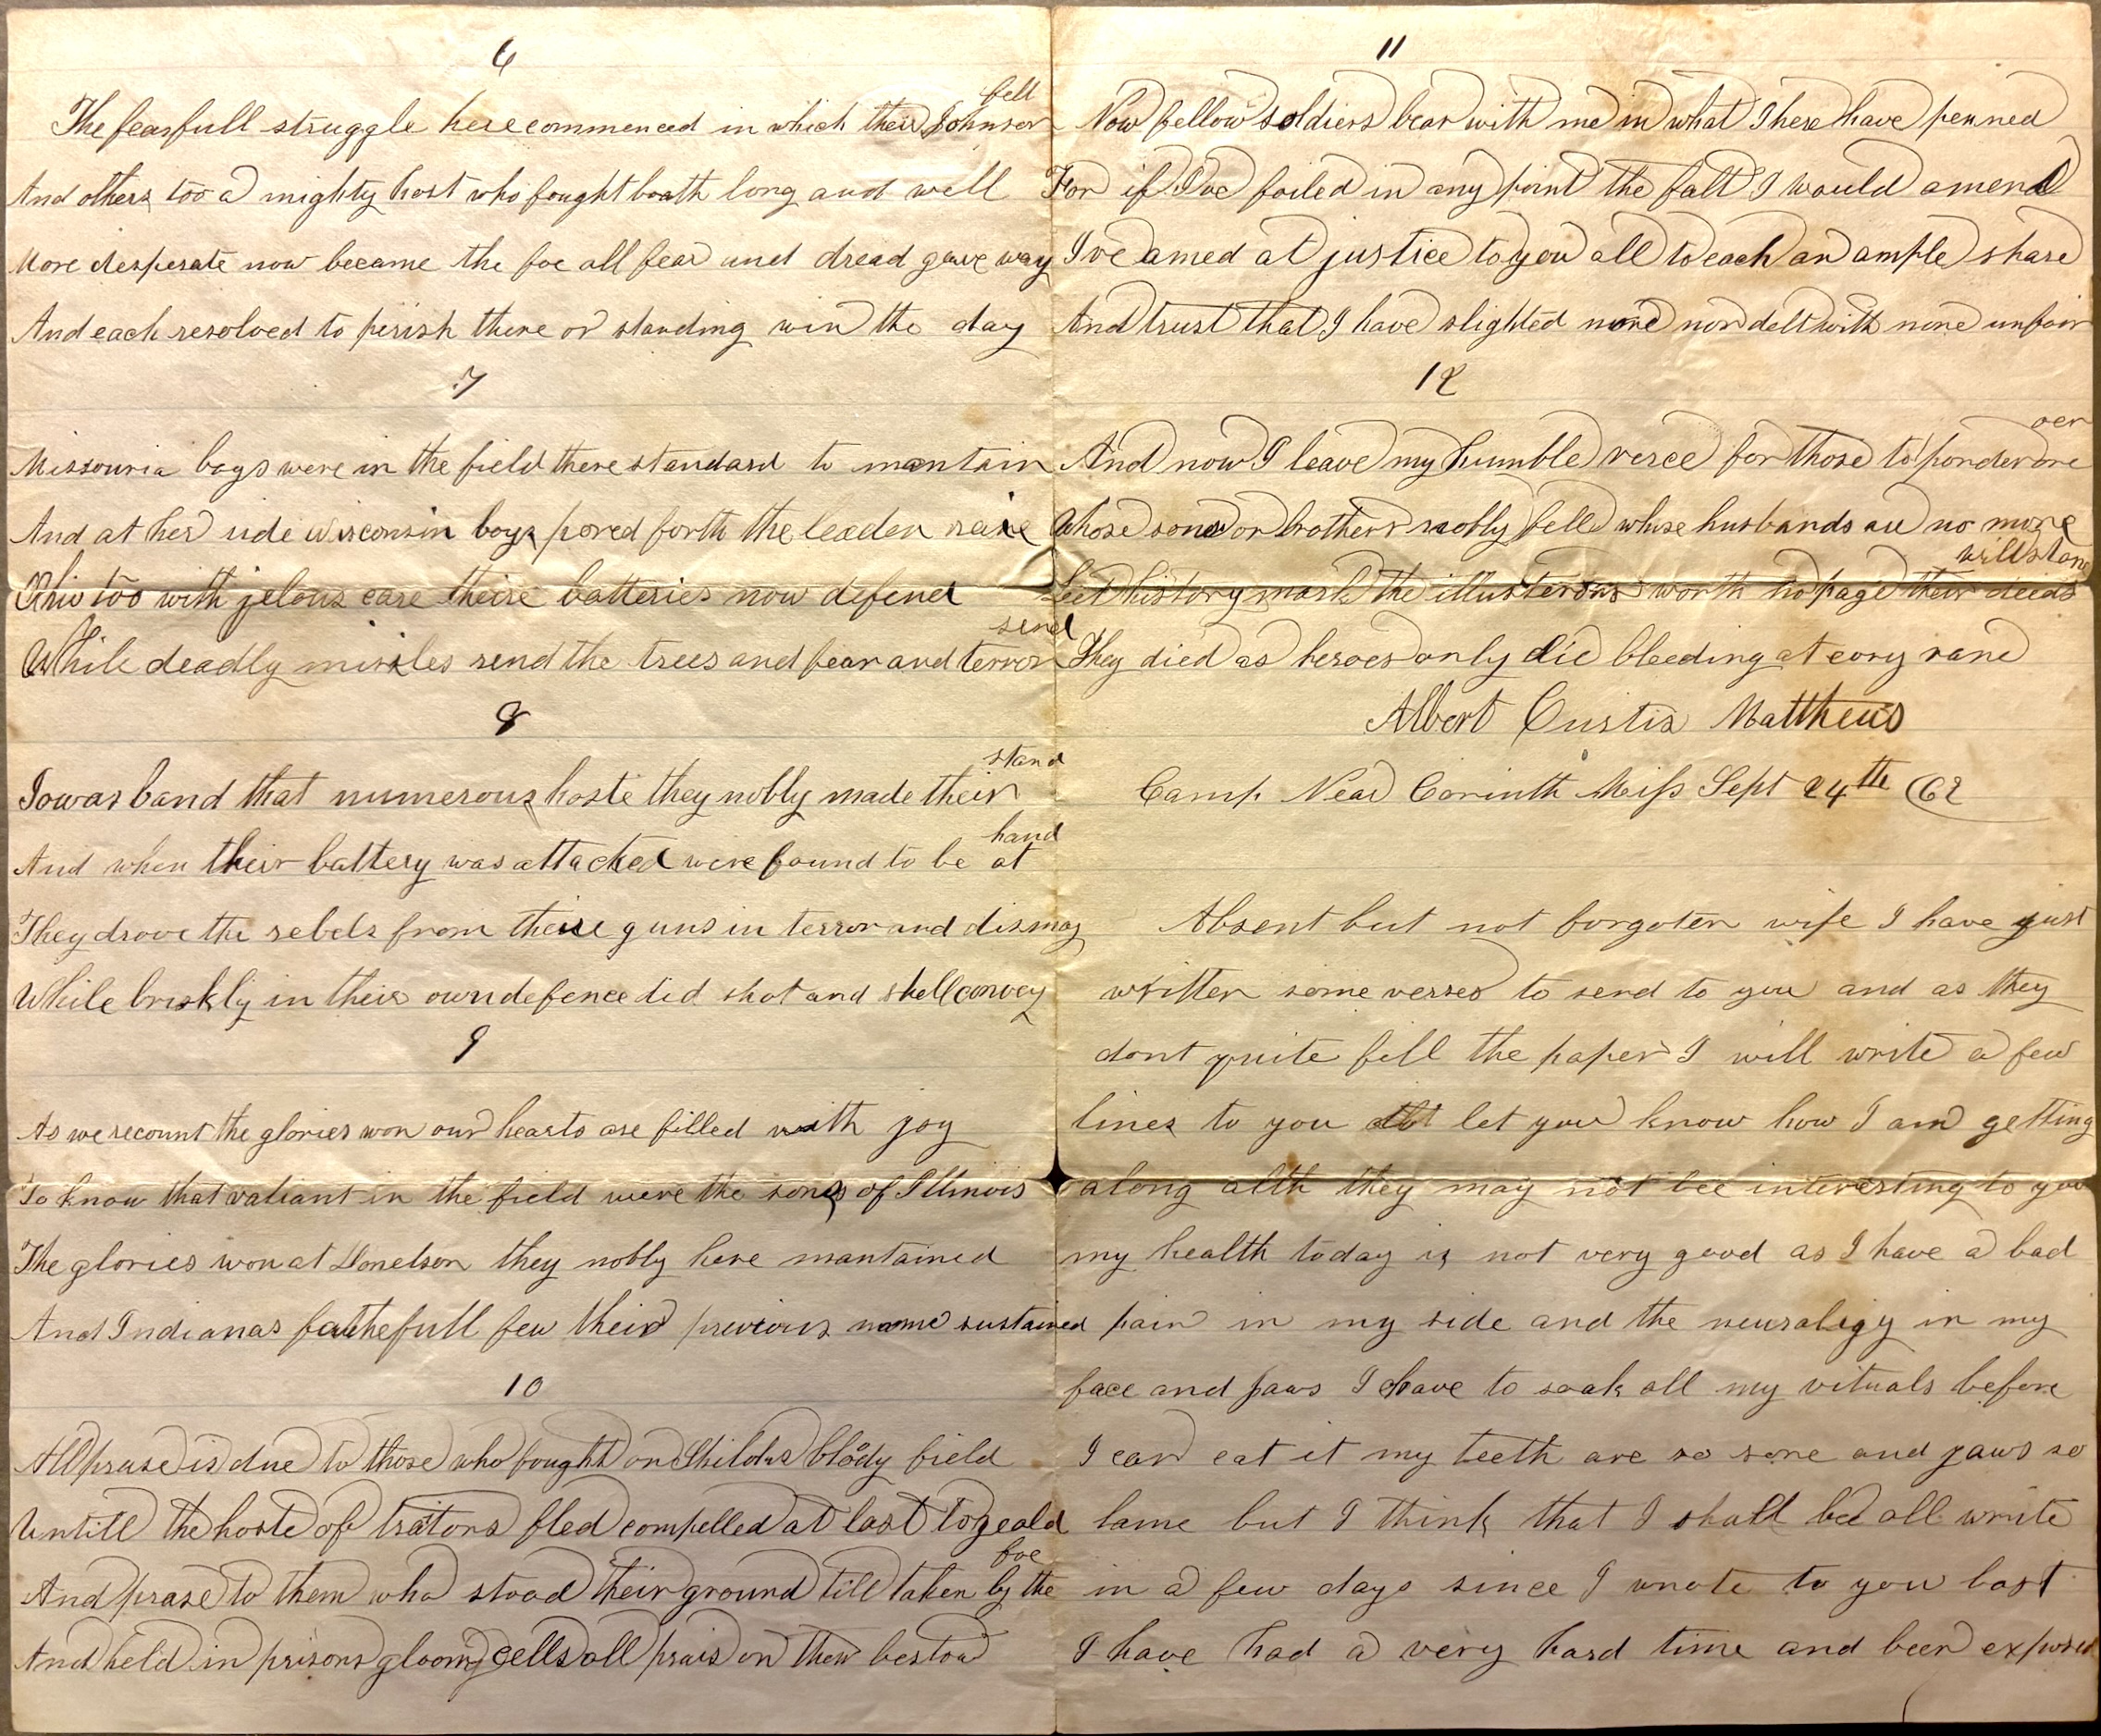 6
The fearfull struggle here commenced in which their Johnson fell
And others too a mighty host who fought boath long and well
More desperate now became the foe all fear and dread gave way
And each resolved to perish there or standing win the day
7
Missouria boys were in the field there standard to mantain
And at her side Wisconsin boys pored forth the leaden raine
Ohio too with jelous care theire batteries now defend
While deadly misiles rend the trees and fear and terror send
8
Iowas band that numerous hoste they nobly made their stand
And when their battery was attacked were found to be at hand
They drove the rebels from theire guns in terror and dismay
While briskly in their own defence did shot and shell convey
9
As we recount the glories won our hearts are filled with joy
To know that valiant in the field were the sons of Illinois
The glories won at Donelson they nobly here mantained
And Indianas faithefull few their previous name sustained
10
All prase is due to those who fought on Shilohs bloody field
Untill the hoste of traitors fled compelled at last to yeald
And prase to them who stood their ground till taken by the foe
And held in prisons gloomy cells all prais on them bestow
11
Now fellow soldiers bear with me in what I here have penned
For if I've foiled in any point the falt I would amend
I've amed at justice to you all to each an ample share
And trust that I have slighted none nor delt with none unfair
12
And now I leave my humble verce for those to ponder ore oer
Whose sons or brothers nobly fell whose husbands are no more
Let history mark the illusterous worth no page their deeds will stane
They died as heroes only die bleeding at evry vane
Albert Curtis Matthews
Camp Near Corinth Miss Sept 24th 62
Absent but not forgoten wife I have just
written some verses to send to you and as they
dont quite fill the paper I will write a few
lines to you let you know how I am getting
along alth they may not bee interesting to you
my health today is not very good as I have a bad
pain in my side and the neuraligy in my
face and jaws I have to soak all my vituals before
I can eat it my teeth are so sore and jaws so
lame but I think that I shall be all write
in a few days since I wrote to you last
I have had a very hard time and been exposed